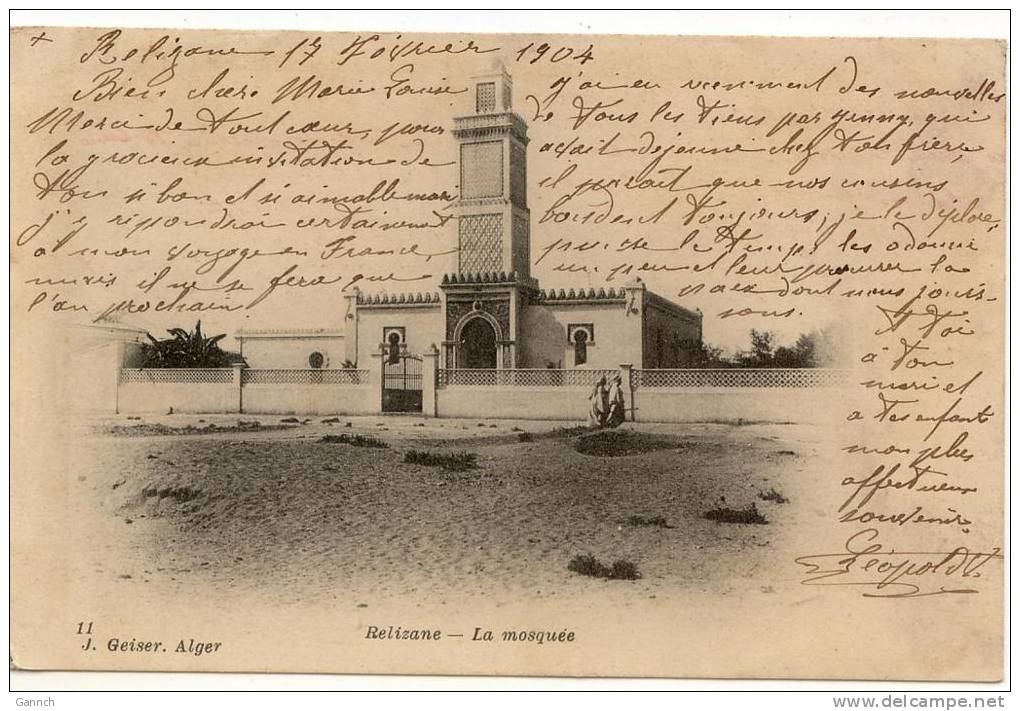 Relizane 17 Février 1904
Bien chère Marie Louise
Merci de tout cœur, pour
la gracieux invitation de
ton si bon et si aimable mari
j'y répondrai certainement
à mon voyage en France,
mais il ne se fera que
l'an prochain.
J'ai eu récemment des nouvelles
de tous les tiens par Jenny, qui
avait déjeuné chez ton frère,
il paraît que nos cousins
boudent toujours, je le déplore,
puisse le temps les adoucir
un peu et leur procurer la
paix dont nous jouis-
sons.
A toi
à ton
mari et
a tes enfants
mon plus
affectueux
souvenir
Léopold
11
J. Geiser. Alger
Relizane — La mosquée
Gannch
www.delcampe.net